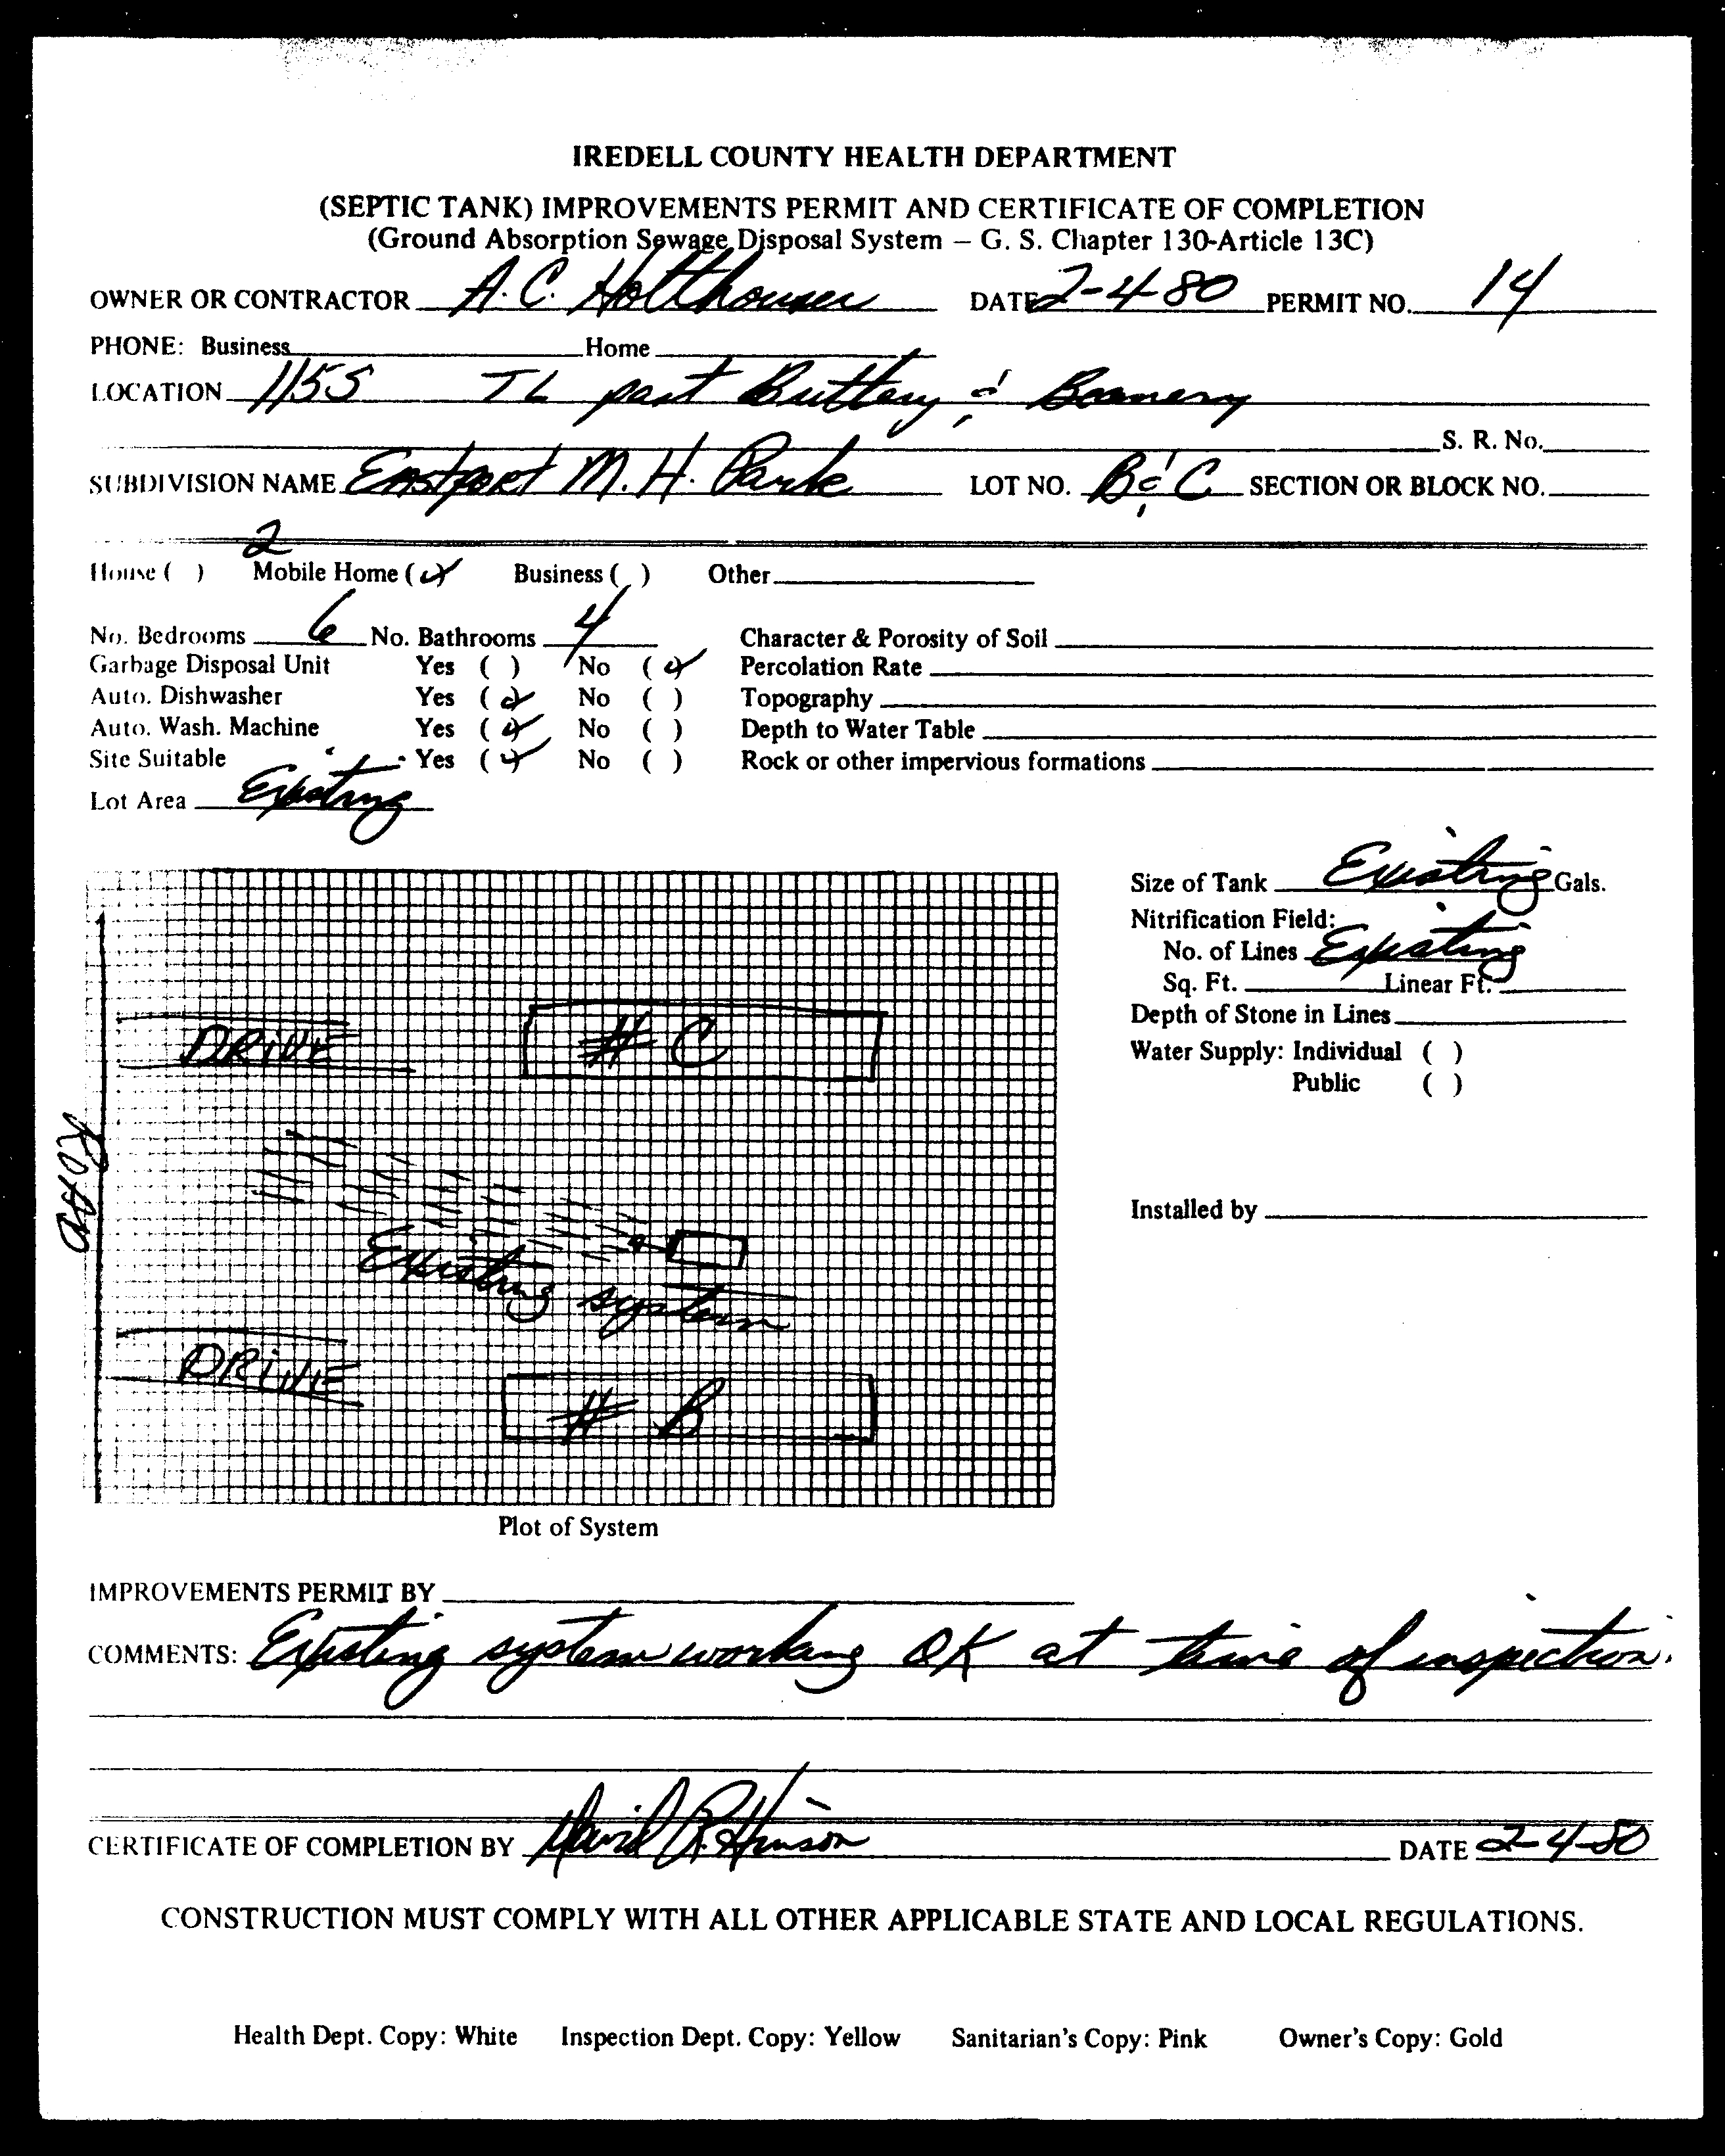 IREDELL COUNTY HEALTH DEPARTMENT
(SEPTIC TANK) IMPROVEMENTS PERMIT AND CERTIFICATE OF COMPLETION
(Ground Absorption Sewage Disposal System – G. S. Chapter 130-Article 13C)
OWNER OR CONTRACTOR A.C. Holthouser DATE 2-4-80 PERMIT NO. 14
PHONE: Business Home
LOCATION 1155 TL past Buttery & Beanery
S. R. No.
SUBDIVISION NAME Eastport M.H. Park LOT NO. B & C SECTION OR BLOCK NO.
2
House ( ) Mobile Home (✓) Business ( ) Other
No. Bedrooms 6 No. Bathrooms 4 Character & Porosity of Soil
Garbage Disposal Unit Yes ( ) No (✓) Percolation Rate
Auto. Dishwasher Yes (✓) No ( ) Topography
Auto. Wash. Machine Yes (✓) No ( ) Depth to Water Table
Site Suitable Yes (✓) No ( ) Rock or other impervious formations
Lot Area Existing
Size of Tank Existing Gals.
Nitrification Field:
No. of Lines Existing
Sq. Ft. Linear Ft.
Depth of Stone in Lines
Water Supply: Individual ( )
Public ( )
Installed by
DRIVE # C
Road
Existing system
DRIVE # B
Plot of System
IMPROVEMENTS PERMIT BY
COMMENTS: Existing system working OK at time of inspection.
CERTIFICATE OF COMPLETION BY David R. Hinson DATE 2-4-80
CONSTRUCTION MUST COMPLY WITH ALL OTHER APPLICABLE STATE AND LOCAL REGULATIONS.
Health Dept. Copy: White Inspection Dept. Copy: Yellow Sanitarian's Copy: Pink Owner's Copy: Gold